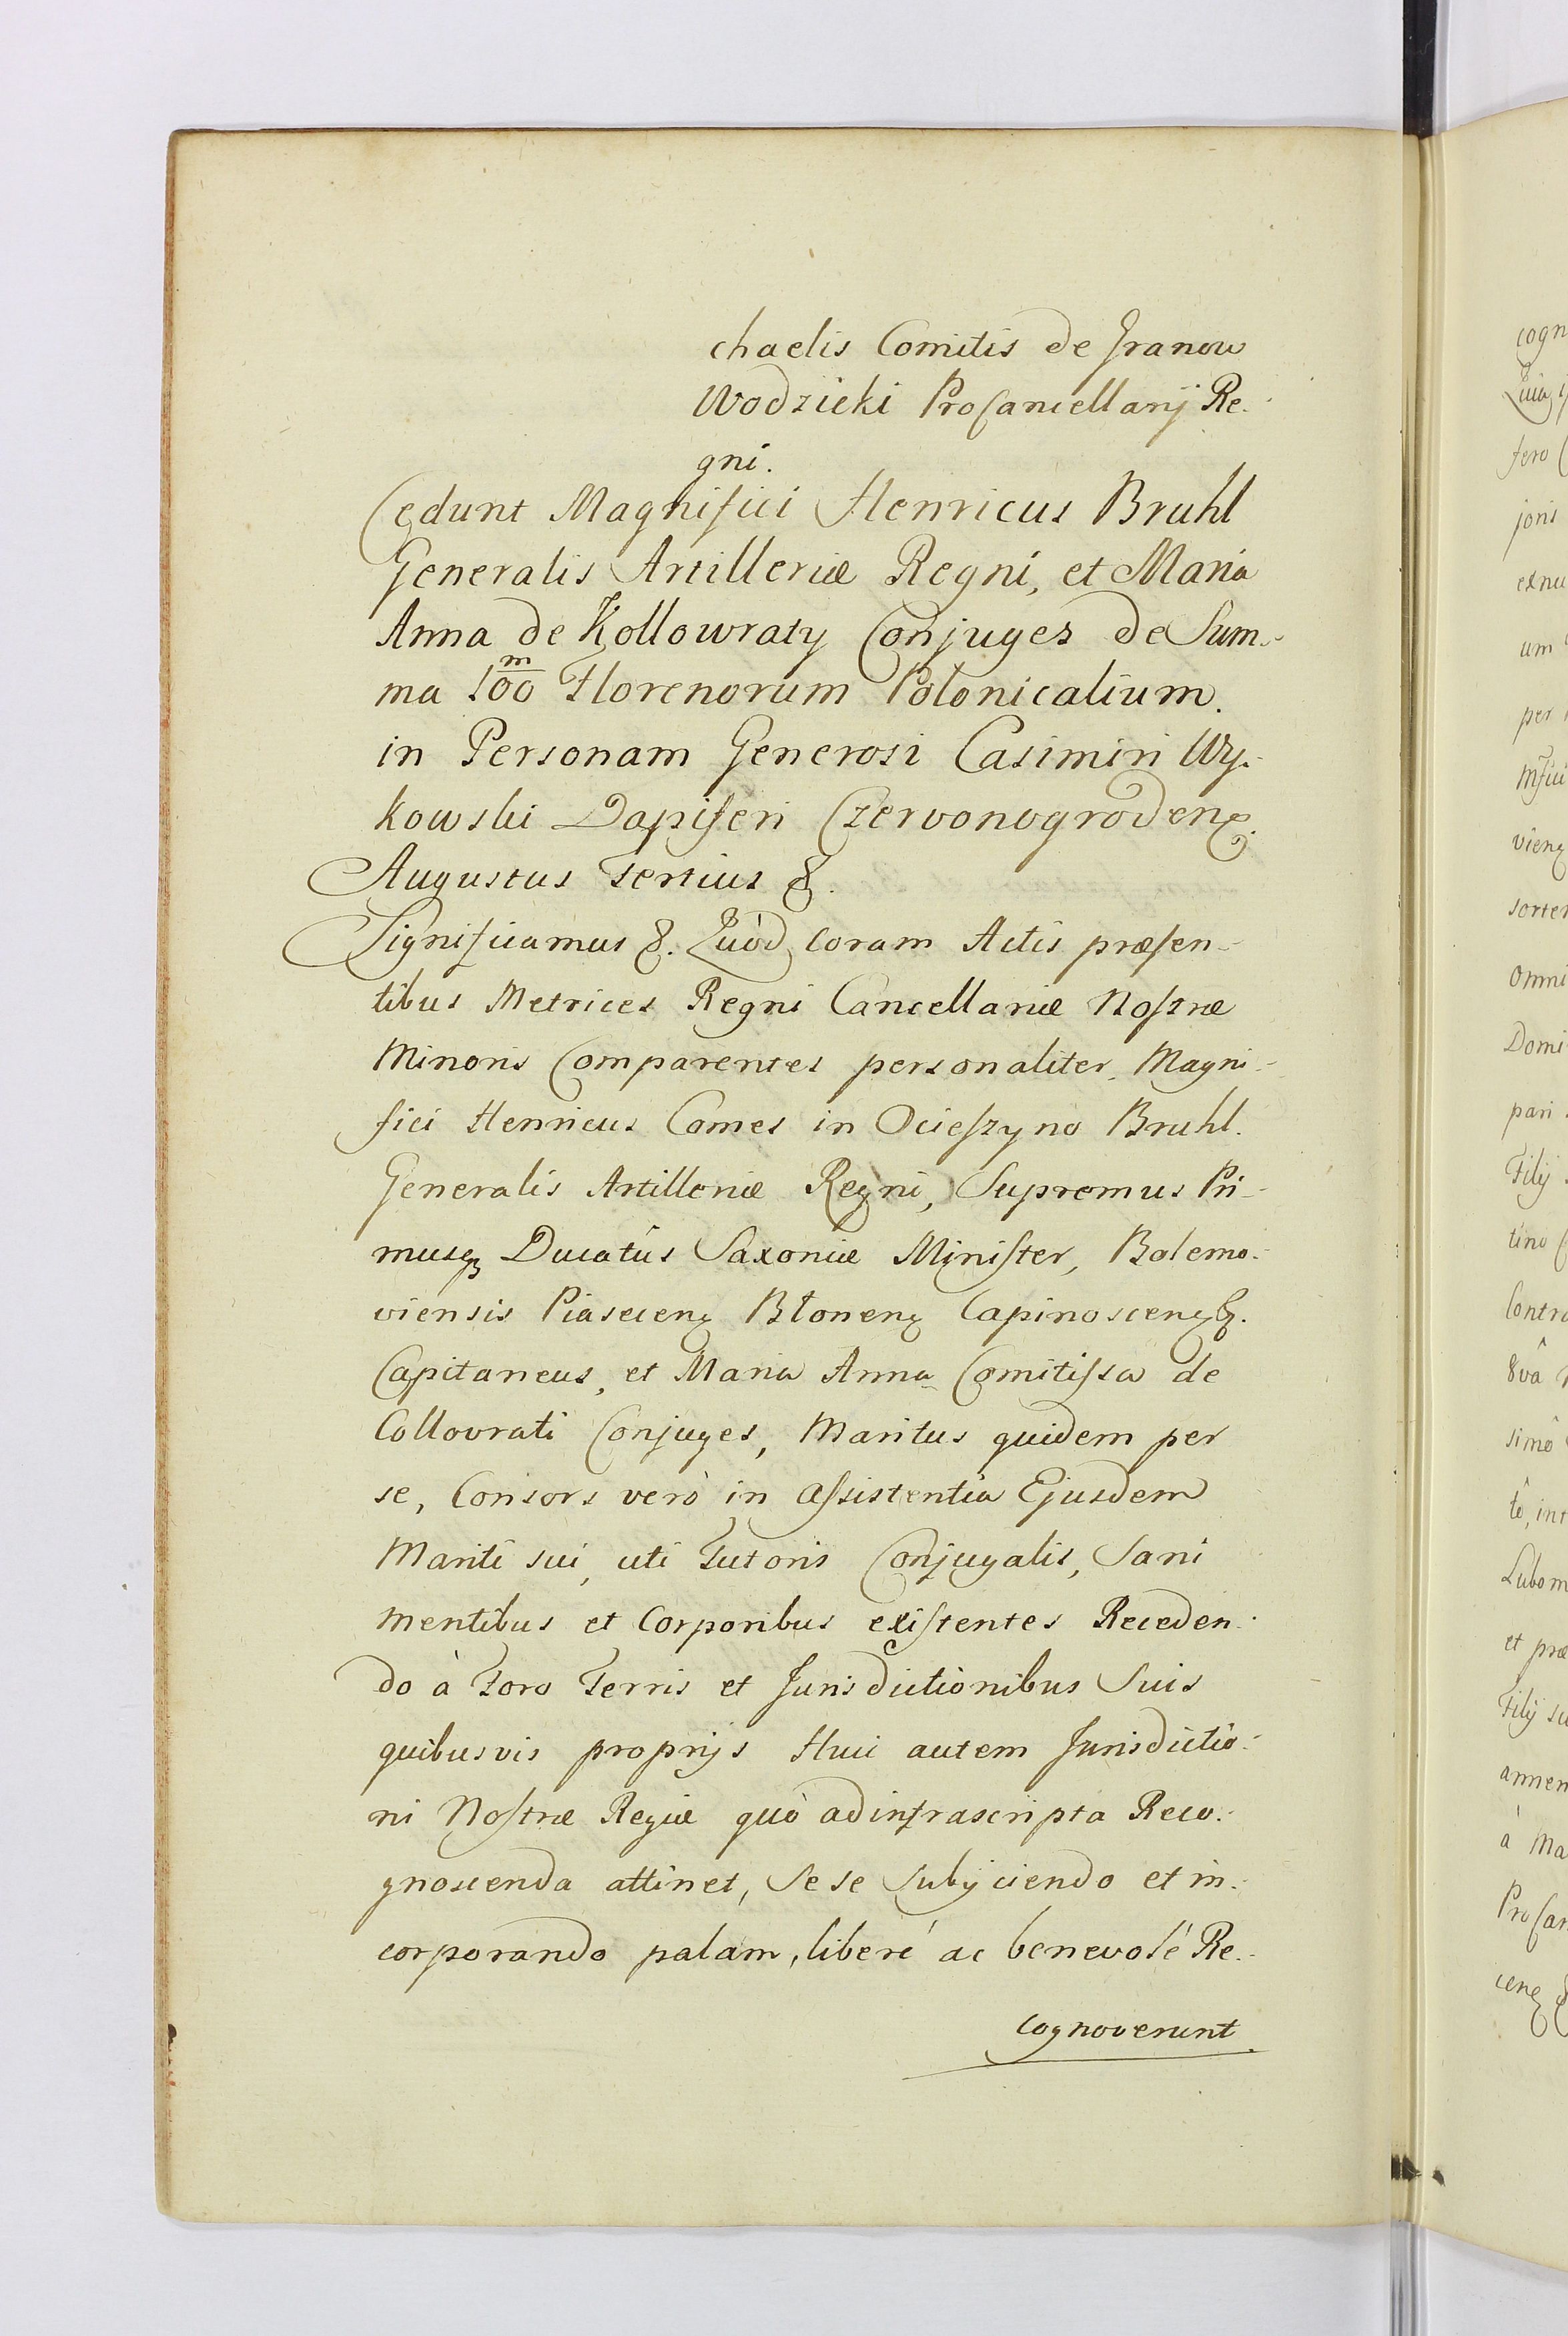 chaelis Comitis de Granow
Wodzicki ProCancellarij Re-
gni.
Cedunt Magnifici Henricus Bruhl
Generalis Artilleriæ Regni, et Maria
Anna de Kollowraty Conjuges de Sum-
ma 100 m Florenorum Polonicalium.
in Personam Generosi Casimiri Wy-
kowski Dapiferi Czervonogrodenς.
Augustus Tertius &.
Significamus &. Quòd coram Actis præsen-
tibus Metrices Regni Cancellariæ Nostræ
Minoris Comparentes personaliter Magni-
fici Henricus Comes in Ocieszyno Bruhl.
Generalis Artilleriæ Regni, Supremus Pri-
musq Ducatûs Saxoniæ Minister, Bolemo-
viensis Piasecenς Błonenς Capinoscenς &.
Capitaneus, et Maria Anna Comitissa de
Collovrati Conjuges, Maritus quidem per
se, Consors verò in assistentia Ejusdem
Mariti sui, uti Tutoris Conjugalis, Sani
mentibus et Corporibus existentes Receden-
do à Foro Terris et Jurisdictionibus Suis
quibusvis proprijs Huic autem Jurisdictio-
ni Nostræ Regiæ quò ad infrascripta Reco-
gnoscenda attinet, Se se Subijciendo et in-
corporando palam, liberé ac benevolé Re-
cognoverunt.
cogn
fero
joris
um
per
vienς
sorte
omni
Domi
pari
Filij
tino
Contra
simô
tô, int
Lubom
et præ
Filij su
à Ma
ProCan
cenς